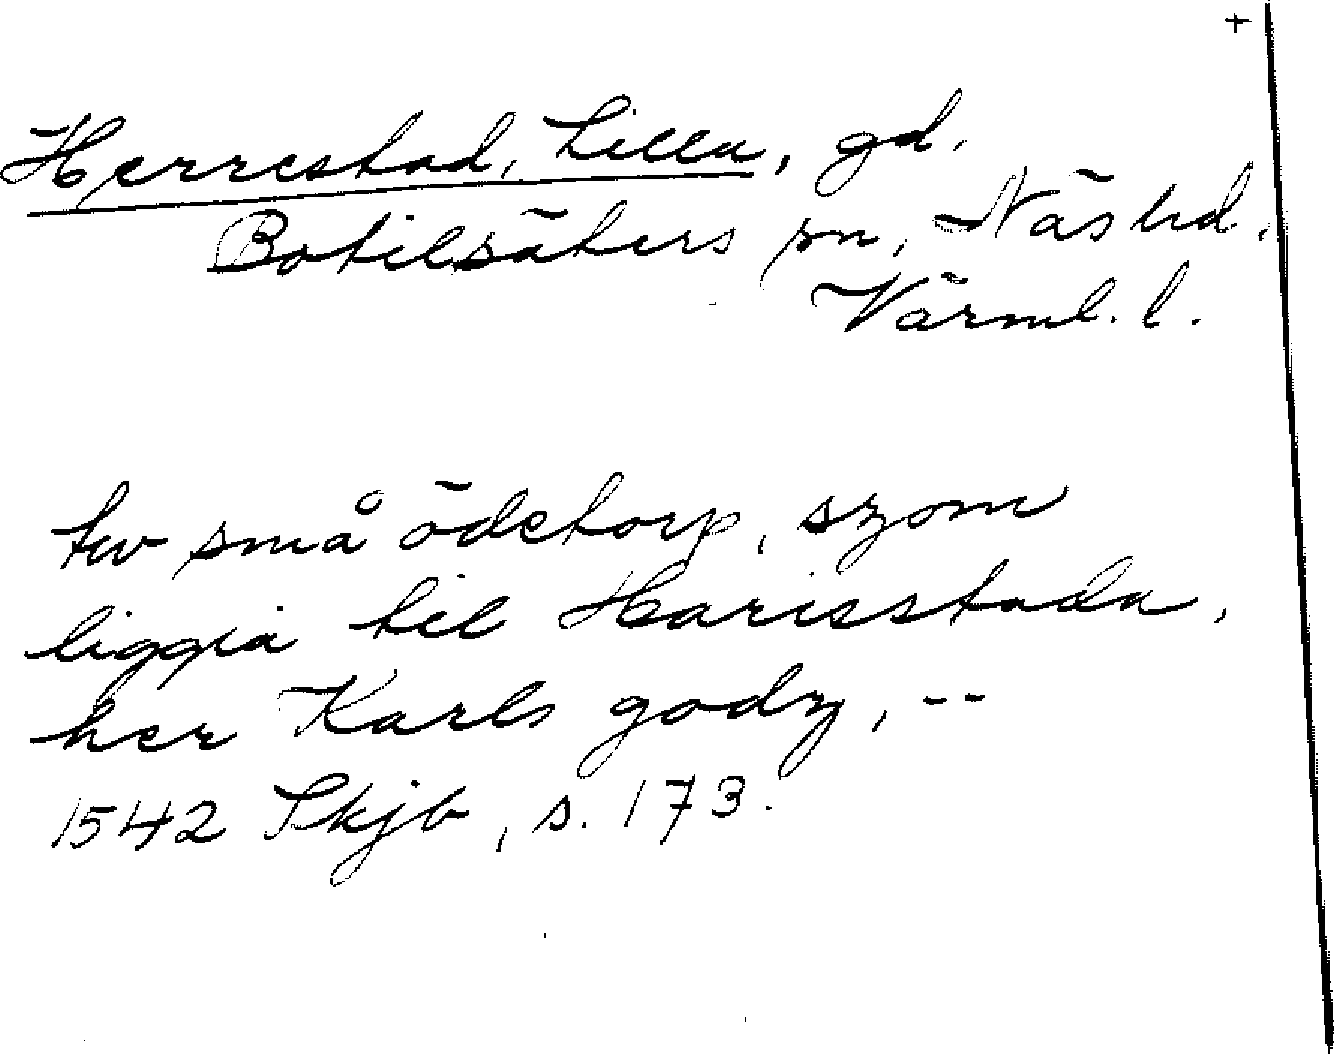 +
Herrestad, Lilla, gd.
Botilsäters sn, Näs hd.
Värml. l.
tw små ödetorp, szom
liggia til Harisstada,
her Karls godz, --
1542 Skjb, s. 173.